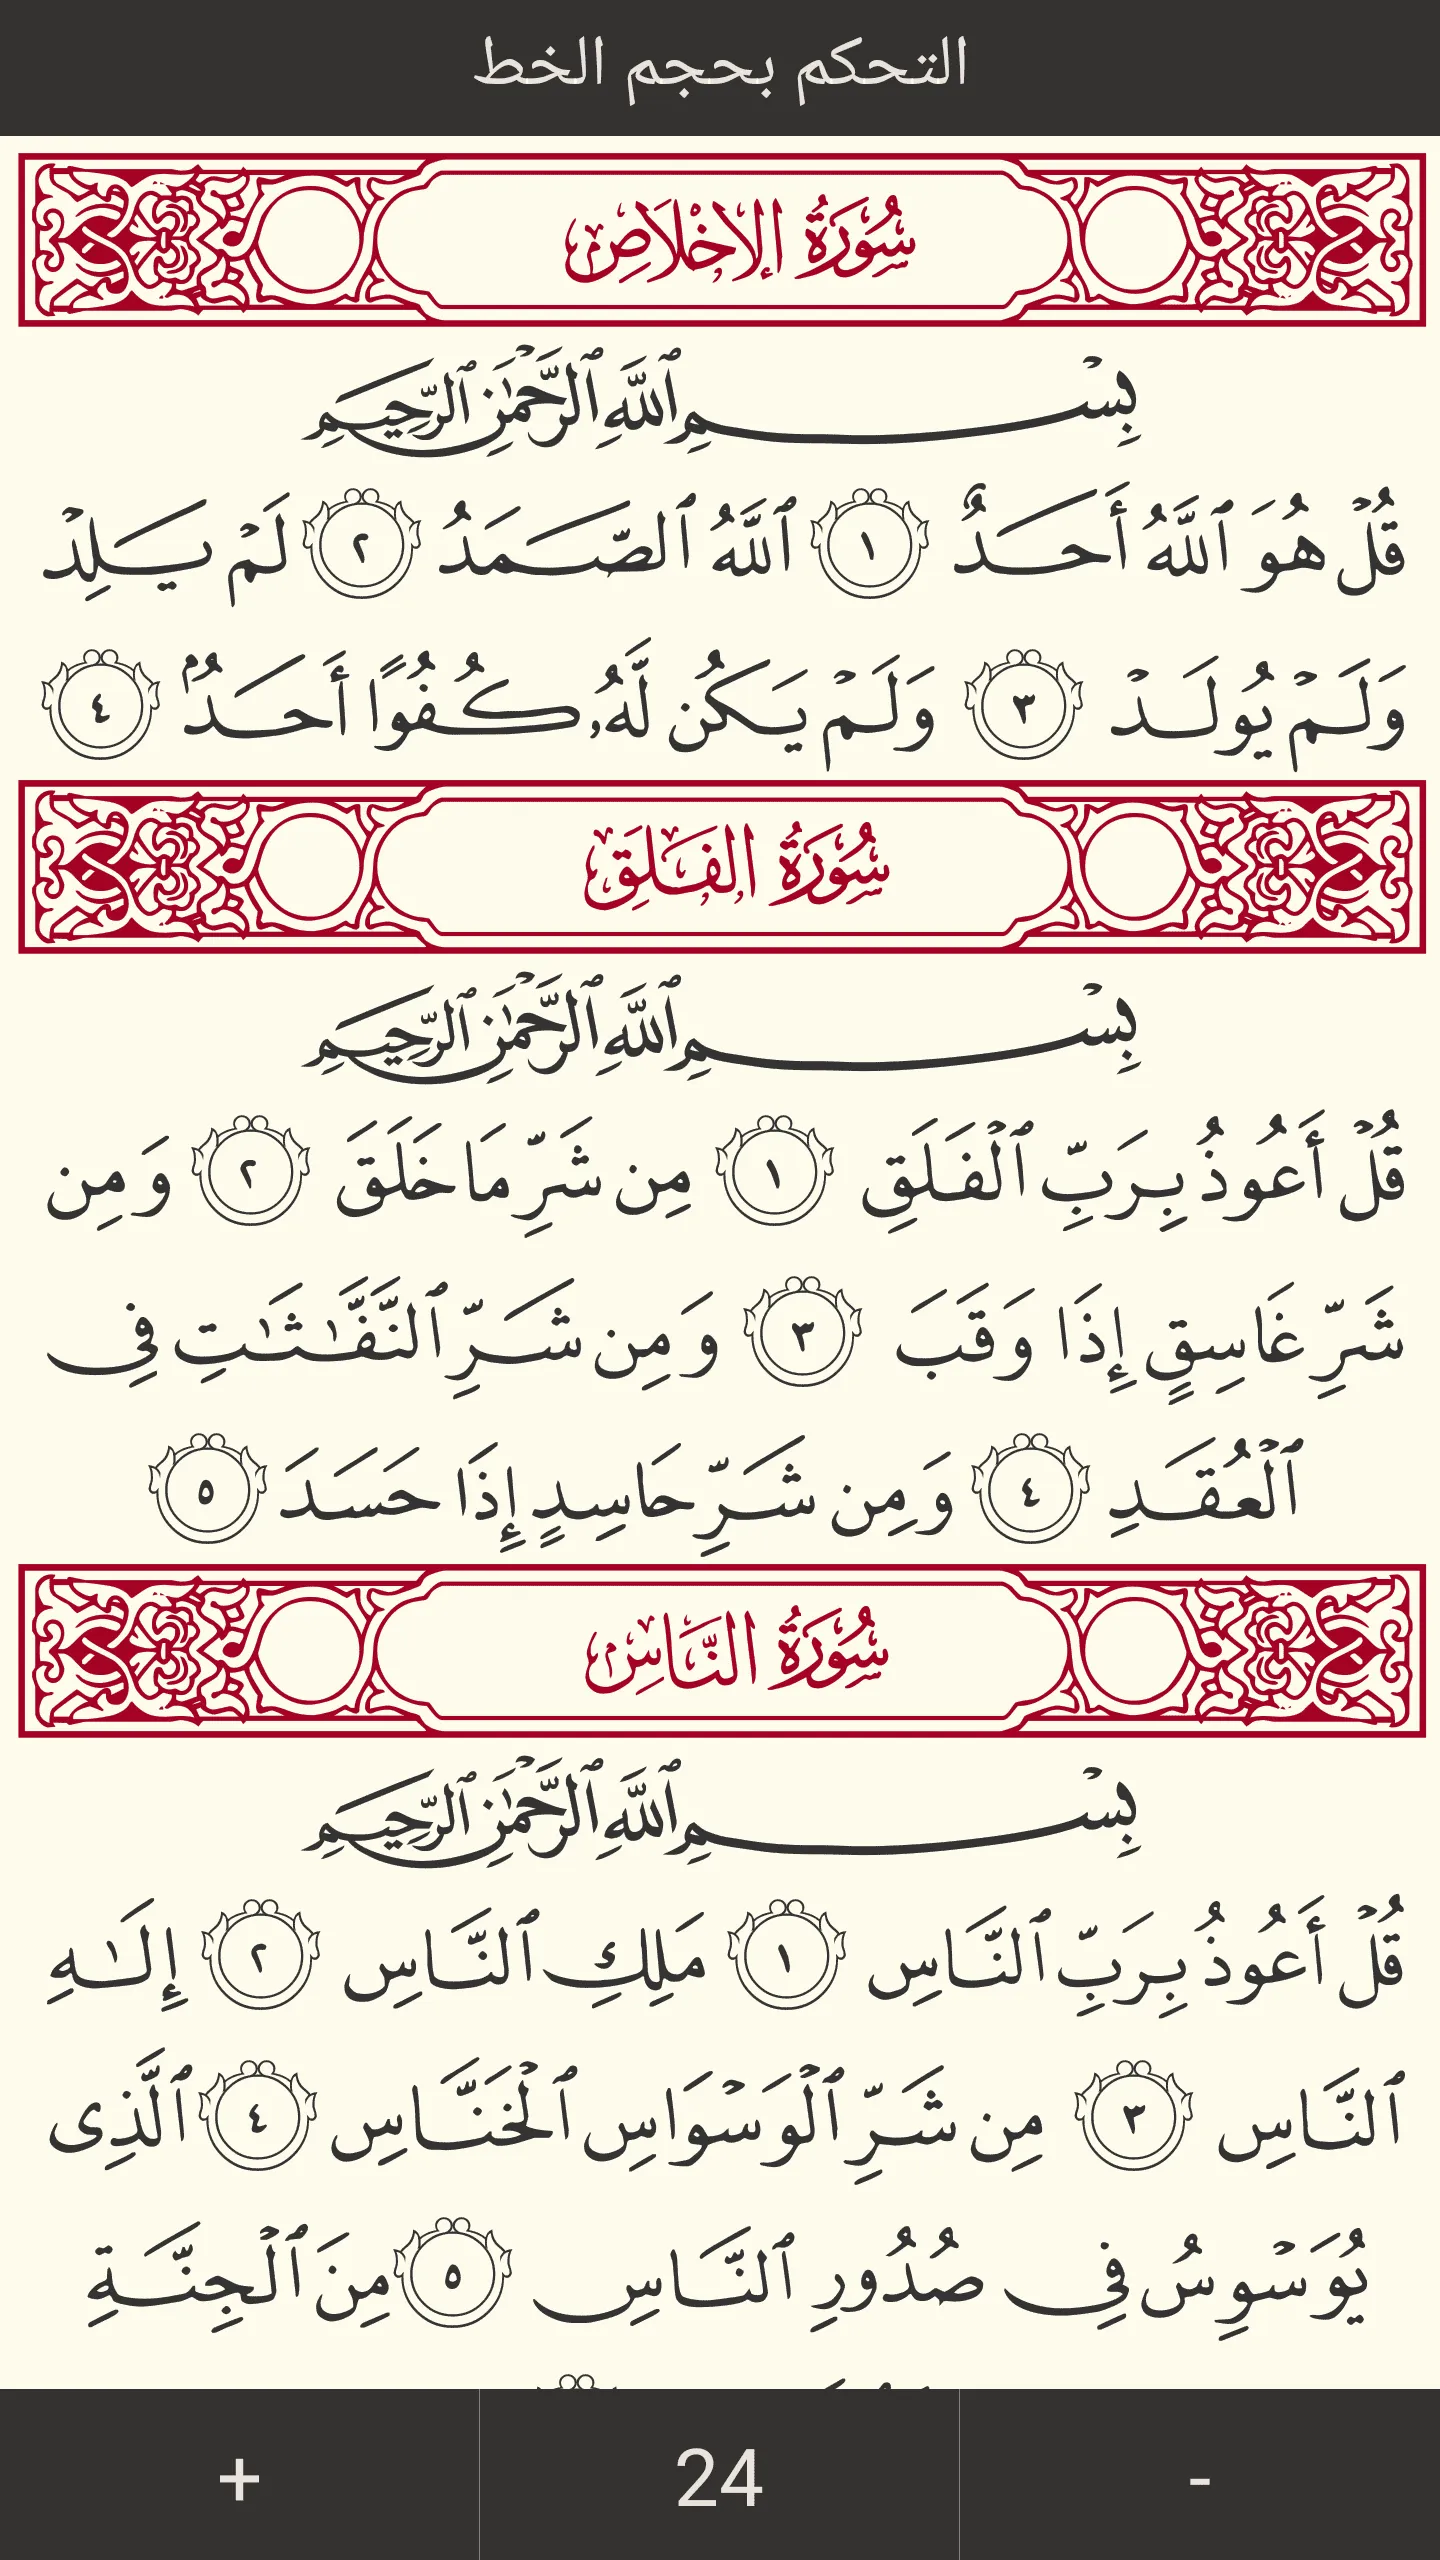 التحكم بحجم الخط
سُورَةُ الإِخْلَاصِ
بِسْمِ ٱللَّهِ ٱلرَّحْمَٰنِ ٱلرَّحِيمِ
قُلْ هُوَ ٱللَّهُ أَحَدٌ ١ ٱللَّهُ ٱلصَّمَدُ ٢ لَمْ يَلِدْ
وَلَمْ يُولَدْ ٣ وَلَمْ يَكُن لَّهُۥ كُفُوًا أَحَدٌۢ ٤
سُورَةُ الفَلَقِ
بِسْمِ ٱللَّهِ ٱلرَّحْمَٰنِ ٱلرَّحِيمِ
قُلْ أَعُوذُ بِرَبِّ ٱلْفَلَقِ ١ مِن شَرِّ مَا خَلَقَ ٢ وَمِن
شَرِّ غَاسِقٍ إِذَا وَقَبَ ٣ وَمِن شَرِّ ٱلنَّفَّٰثَٰتِ فِى
ٱلْعُقَدِ ٤ وَمِن شَرِّ حَاسِدٍ إِذَا حَسَدَ ٥
سُورَةُ النَّاسِ
بِسْمِ ٱللَّهِ ٱلرَّحْمَٰنِ ٱلرَّحِيمِ
قُلْ أَعُوذُ بِرَبِّ ٱلنَّاسِ ١ مَلِكِ ٱلنَّاسِ ٢ إِلَٰهِ
ٱلنَّاسِ ٣ مِن شَرِّ ٱلْوَسْوَاسِ ٱلْخَنَّاسِ ٤ ٱلَّذِى
يُوَسْوِسُ فِى صُدُورِ ٱلنَّاسِ ٥ مِنَ ٱلْجِنَّةِ
+ 24 -